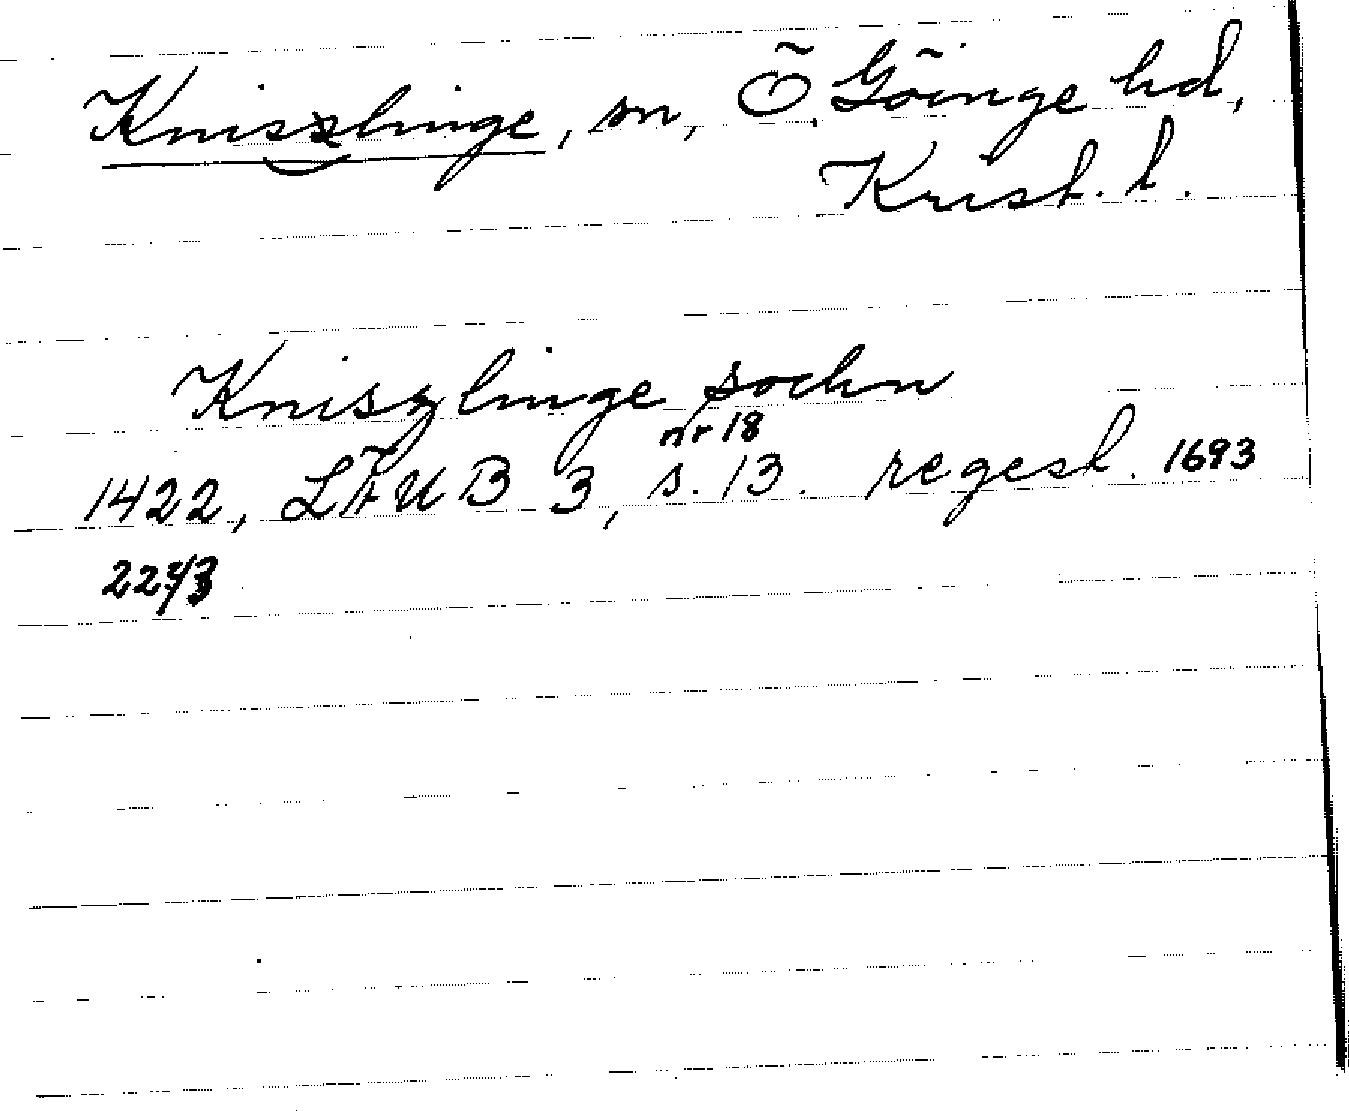 Knisslinge, sn, Ö. Göinge hd,
Krist. l.
Kniszlinge sochn
nr 18
1422, LÄUB 3, s. 13. regest. 1693
22/3